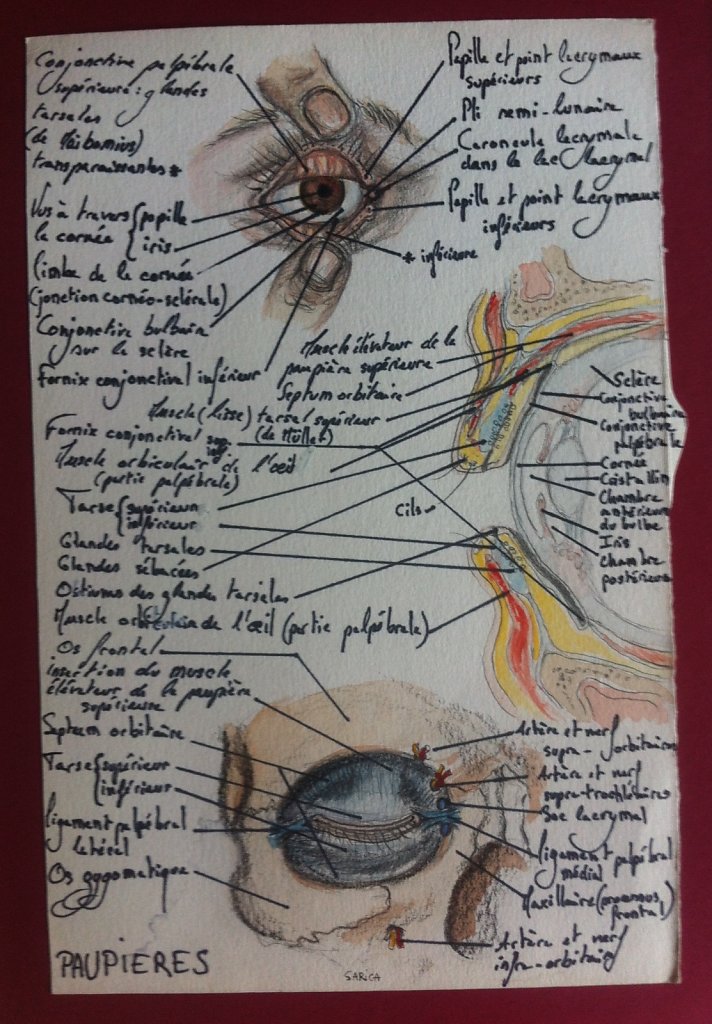 Conjonctive palpébrale
supérieure : glandes
tarsales
(de Meibomius)
transparaissantes *
Vus à travers { pupille
la cornée { iris
limbe de la cornée
(jonction cornéo-sclérale)
Conjonctive bulbaire
sur la sclère
Fornix conjonctival inférieur
Papille et point lacrymaux
supérieurs
Pli semi-lunaire
Caroncule lacrymale
dans le lac lacrymal
Papille et point lacrymaux
inférieurs
* inférieure
Muscle élévateur de la
paupière supérieure
Septum orbitaire
Muscle (lisse) tarsal supérieur
(de Müller)
Fornix conjonctival sup.
inf.
Muscle orbiculaire de l'œil
(partie palpébrale)
Tarse { supérieur
inférieur
Glandes tarsales
Glandes sébacées
Obtiums des glandes tarsales
Muscle de l'œil (partie palpébrale)
Cils
Sclère
Conjonctive
bulbaire
Conjonctive
palpébrale
Cornée
Cristallin
Chambre
antérieure
du bulbe
Iris
Chambre
postérieure
Os frontal
insertion du muscle
élévateur de la paupière
supérieure
Septum orbitaire
Tarse { supérieur
inférieur
ligament palpébral
latéral
Os zygomatique
Artère et nerf
supra-orbitaires
Artère et nerf
supra-trochléaires
Sac lacrymal
ligament palpébral
médial
Maxillaire (processus
frontal)
Artère et nerf
infra-orbitaires
PAUPIERES
SARICA